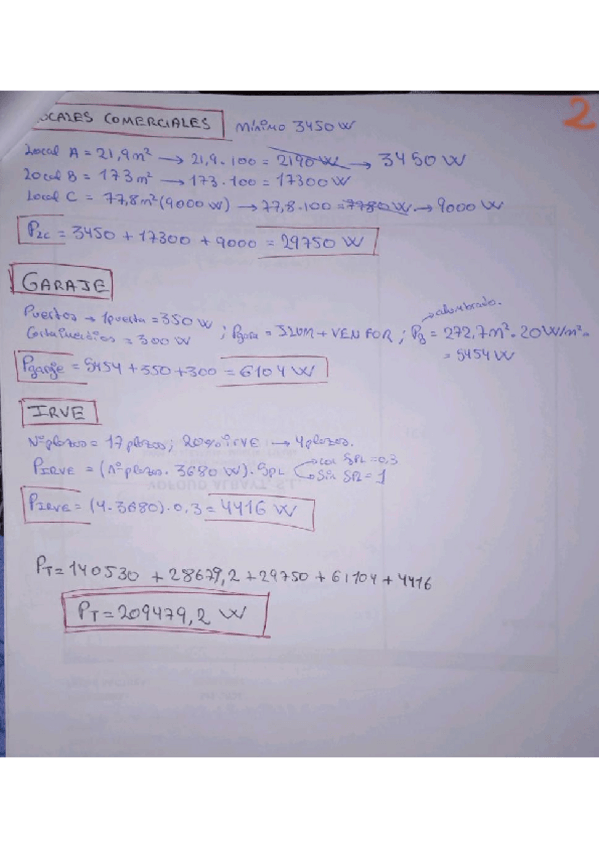 2
LOCALES COMERCIALES mínimo 3450 W
Local A = 21,9 m² → 21,9 · 100 = 2190 W → 3450 W
Local B = 173 m² → 173 · 100 = 17300 W
Local C = 77,8 m² (9000 W) → 77,8 · 100 = 7780 W → 9000 W
PLC = 3450 + 17300 + 9000 = 29750 W
GARAJE
→ alumbrado.
Puertas → 1 puerta = 350 W
Contraincendios = 300 W ; Pgara = ILUM + VEN FOR ; Pg = 272,7 m² · 20 W/m² =
= 5454 W
Pgaraje = 5454 + 350 + 300 = 6104 W
IRVE
Nº plazas = 17 plazas ; 20% IRVE → 4 plazas.
PIRVE = (nº plazas · 3680 W) · SPL con SPL = 0,3
Sin SPL = 1
PIRVE = (4 · 3680) · 0,3 = 4416 W
PT = 140530 + 28679,2 + 29750 + 6104 + 4416
PT = 209479,2 W